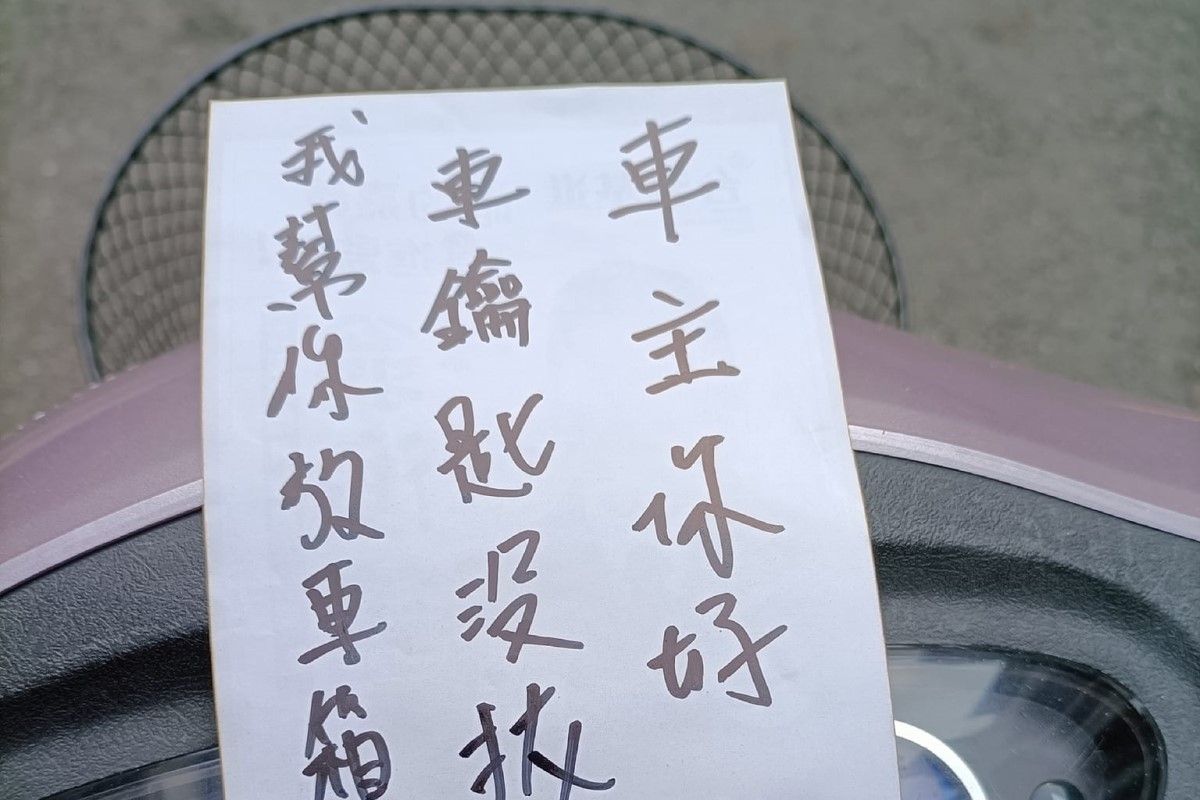 車主你好
車鑰匙沒拔
我幫你放車箱